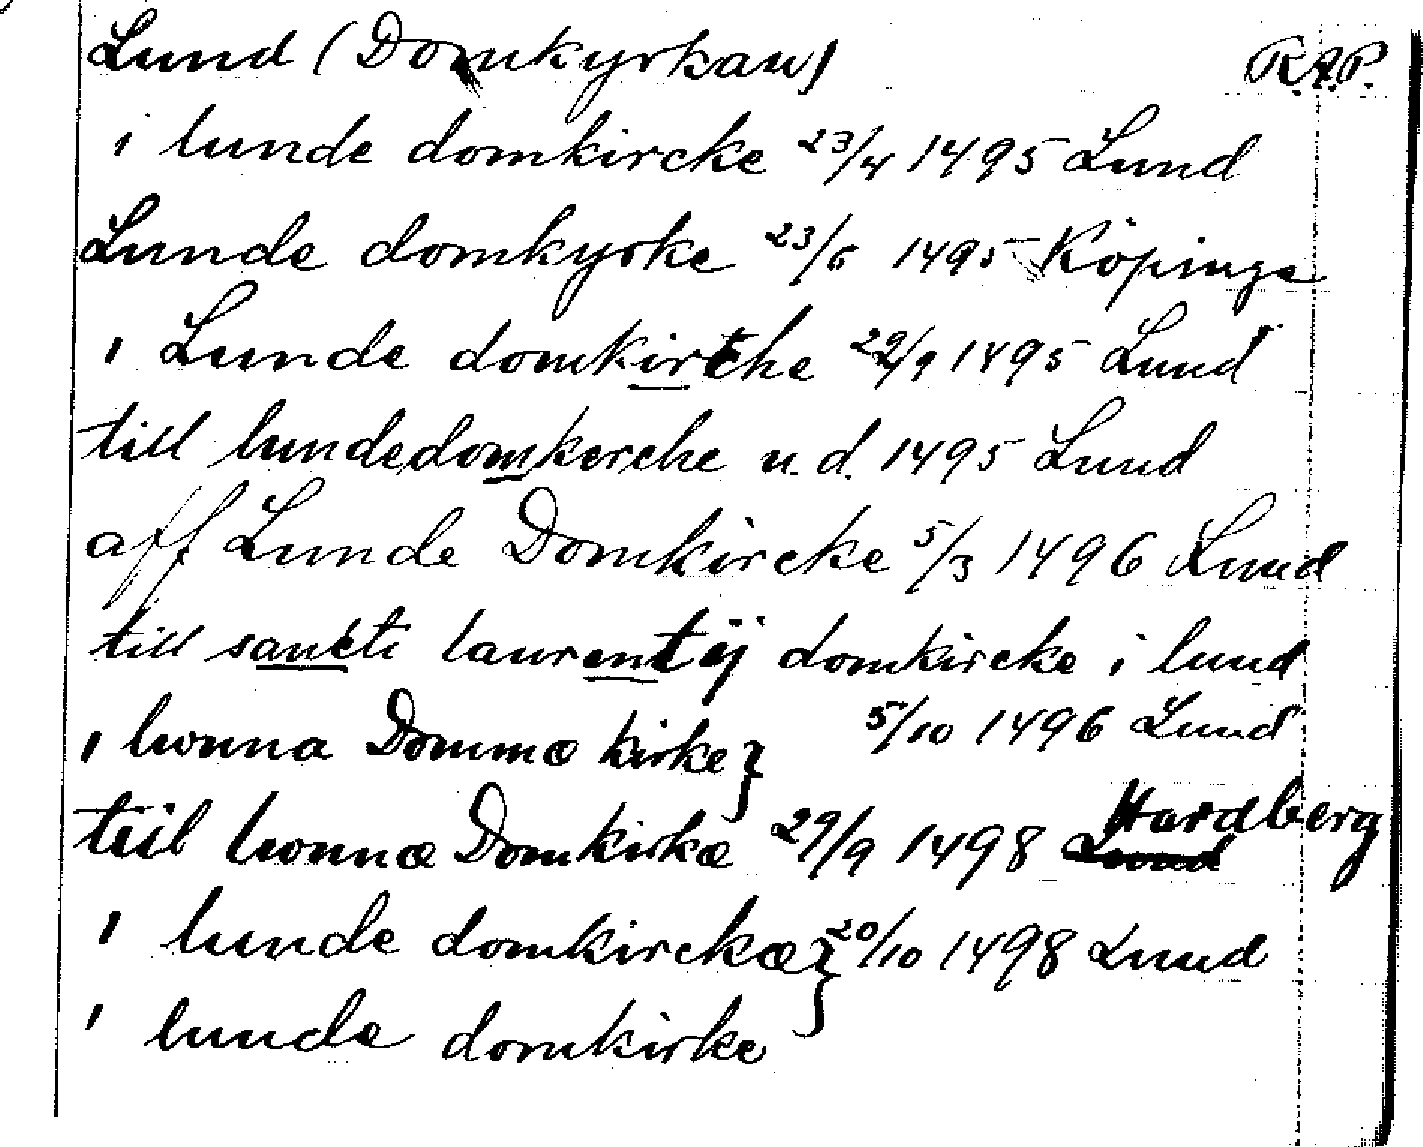 Lund (Domkyrkan) R.A.P.
i lunde domkircke 23/4 1495 Lund
Lunde domkyrke 23/6 1495 Köpinge
i Lunde domkirche 29/9 1495 Lund
till lundedomkerche u.d. 1495 Lund
aff Lunde Domkircke 5/3 1496 Lund
till sancti laurentij domkircke i lund
5/10 1496 Lund
i lwnna Dommæ kirke}
tiil lwnnæ Domkirkæ 29/9 1498 Hardberg
i lunde domkirckæ} 20/10 1498 Lund
i lunde domkirke